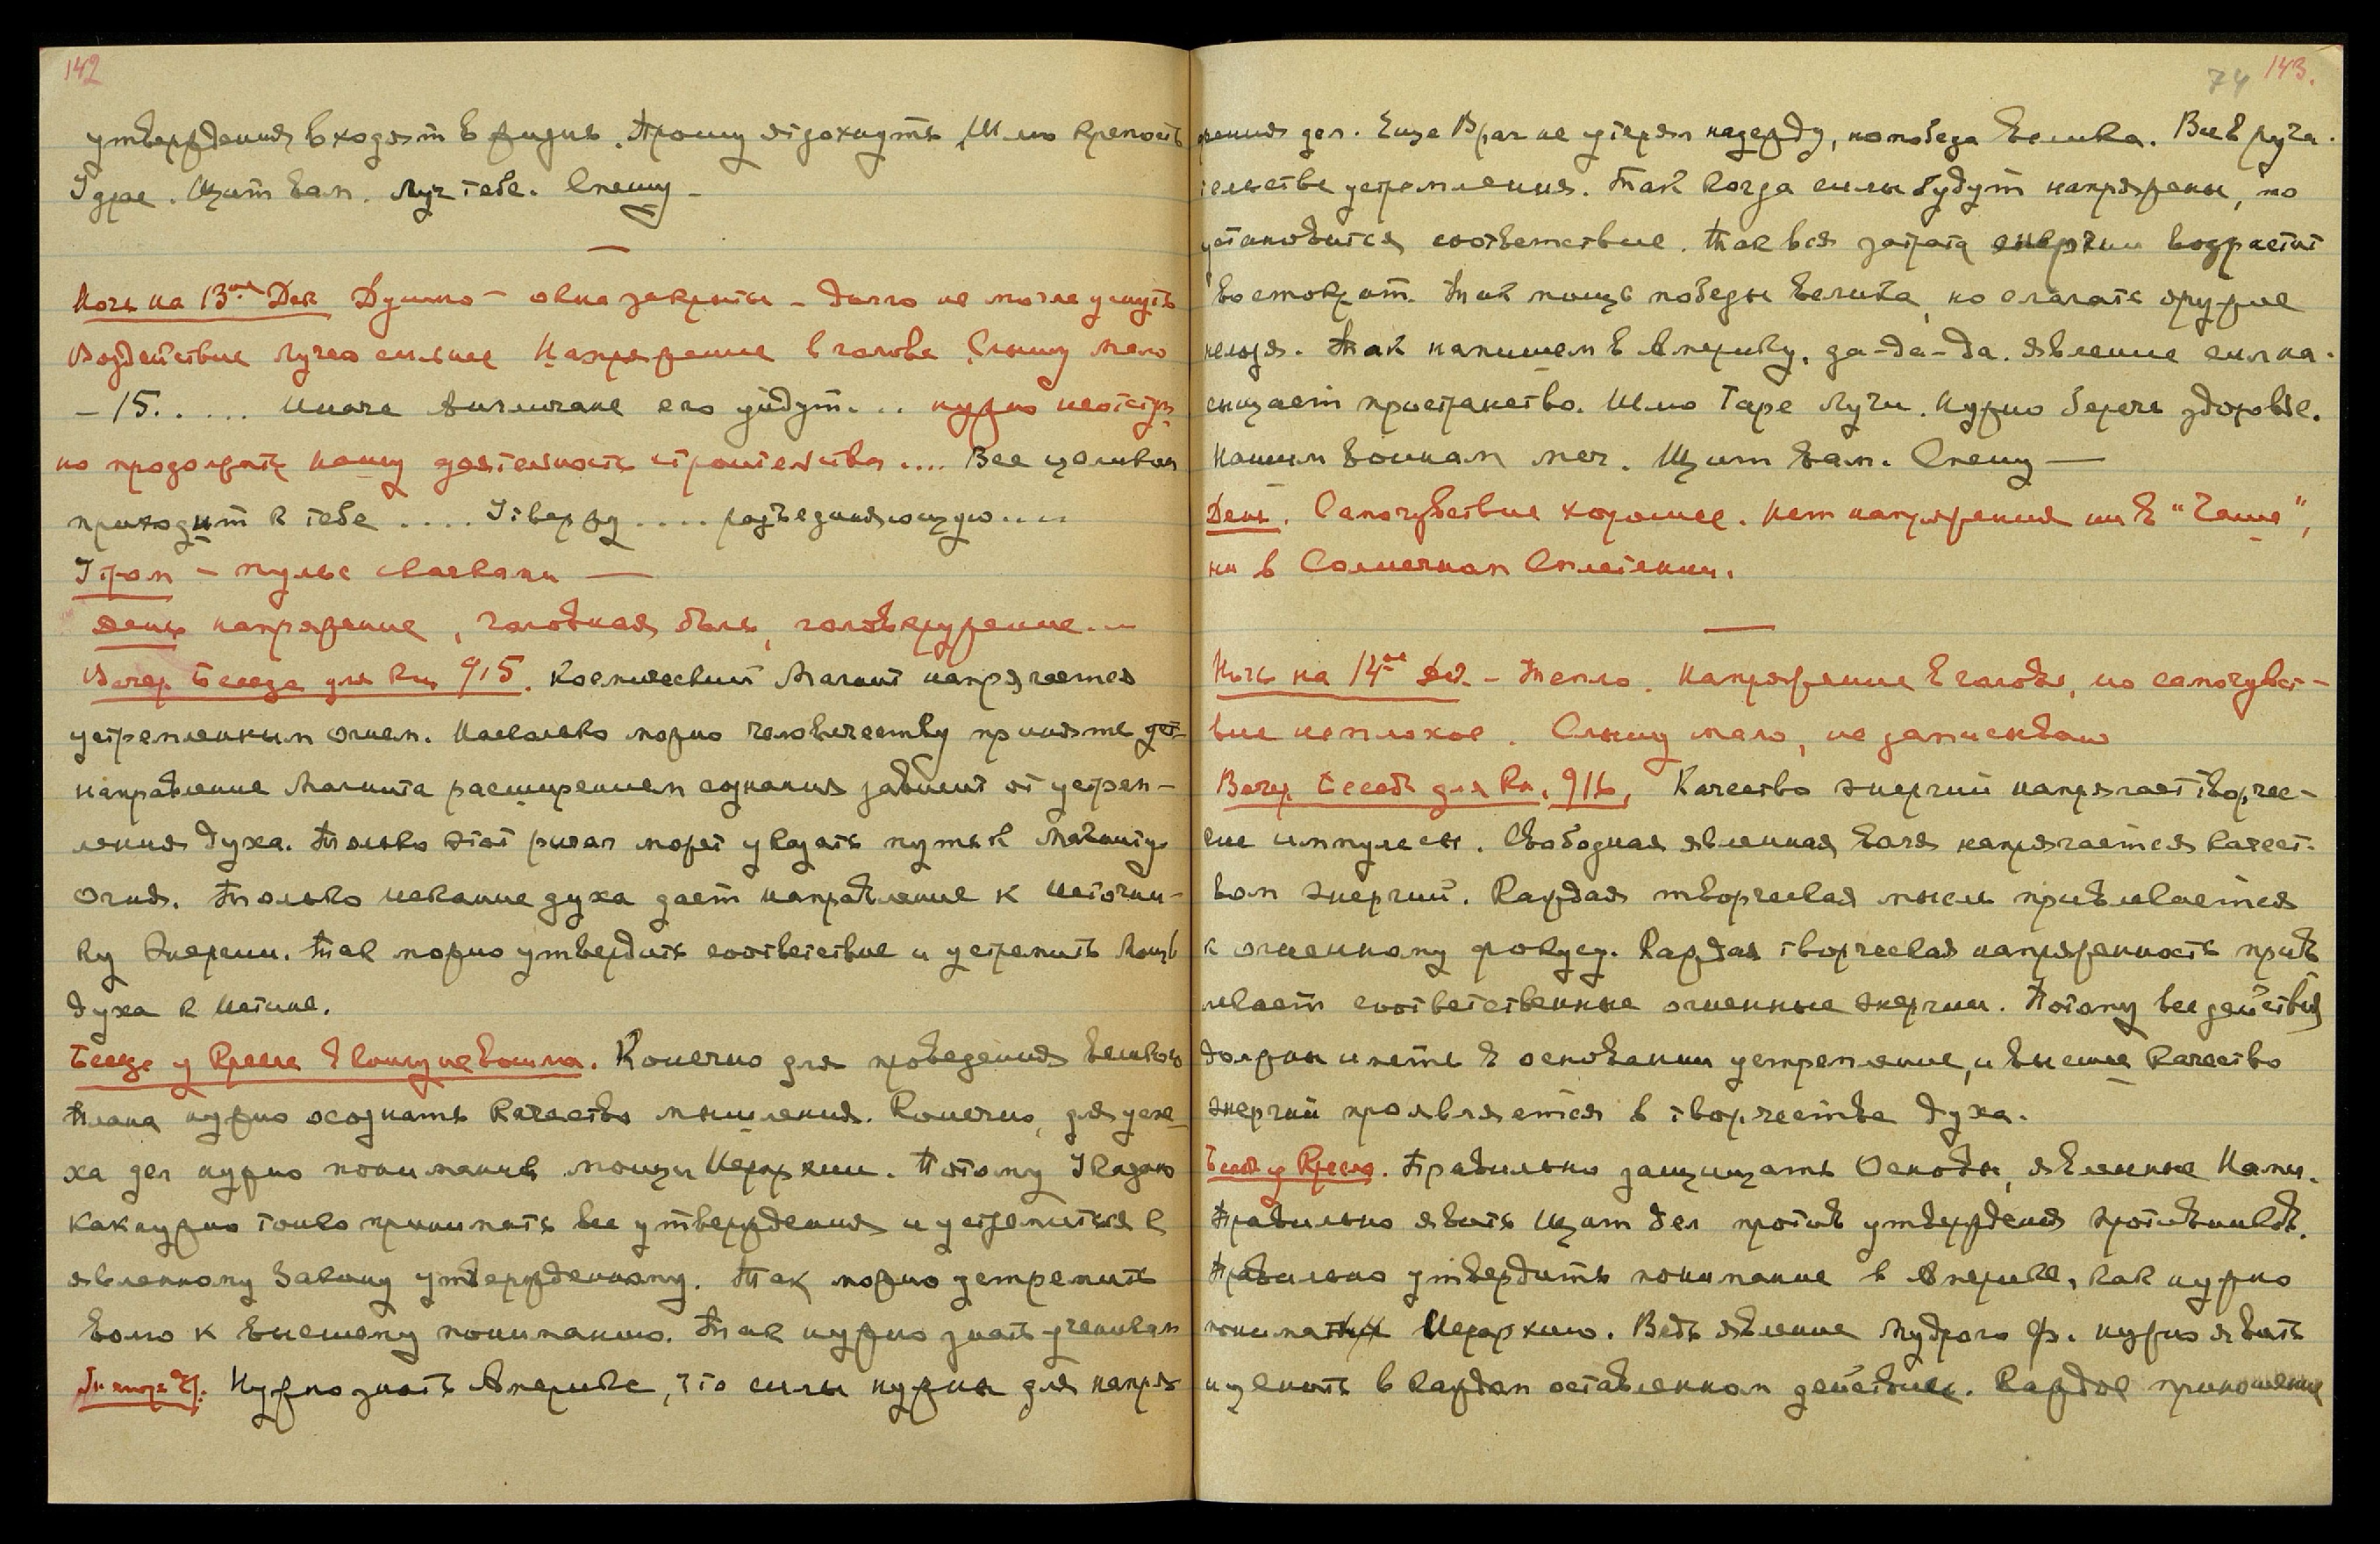 142
утверждения входят в жизнь. Прошу отдохнуть. Шлю крепость
Удрае. Щит Вам. Луч тебе. Спешу –
Ночь на 13ое Дек Душно – окна закрыты – долго не могла уснуть
Воздействие Лучей сильнее Напряжение в голове Слышу мало
– 15. . . . . Иначе Англичане его уйдут. . . нужно неотступ
но продолжать нашу деятельность строительства .... Все целиком
приходит к тебе .... Утвержу .... разъединяющую....
Утром – пульс скачками —
День напряжение, головная боль, головокружение...
Вечер Беседа для Кн 915. Космический Магнит напрягается
устремленным огнем. Насколько можно человечеству принять
направление Магнита расширением сознания зависит от устрем-
ления духа. Только этот рычаг может указать путь к Магниту
Огня. Только искание духа дает направление к Источни-
ку Энергии. Так можно утвердить соответствие и устремить Мощь
духа к Истине.
Беседа у Кресла в книгу не вошла. Конечно для проведения великого
Плана нужно осознать качество мышления. Конечно, для успе-
ха дел нужно понимание мощи Иерархии. Потому Указую
как нужно тонко принимать все утверждения и устремиться к
явленному Закону утвержденному. Так можно устремить
волю к высшему пониманию. Так нужно знать ученикам
Нужно знать Америке, что силы нужны для напря-
74 143.
жения дел. Еще Враг не утерял надежду, но победа велика. Все в руча-
тельстве устремления. Так когда силы будут напряжены, то
установится соответствие. Так вся затрата энергии возрастит
во стократ. Так мощь победы велика, но слагать оружие
нельзя. Так напишем в Америку, да-да-да. явление сил на-
сыщает пространство. Шлю Таре Лучи. Нужно беречь здоровье.
Нашим воинам меч. Щит Вам. Спешу —
День. Самочувствие хорошее. Нет напряжения ни в "Чаше",
ни в Солнечном Сплетении.
Ночь на 14ое Дек. – Тепло. Напряжение в голове, но самочувст-
вие неплохое. Слышу мало, не записываю
Вечер Беседа для Кн. 916, Качество энергий напрягает творчес-
кие импульсы. Свободная явленная воля напрягается качест-
вом энергий. Каждая творческая мысль привлекается
к огненному фокусу. Каждая творческая напряженность прив
лекает соответственные огненные энергии. Потому все действия
должны иметь в основании устремление, и высшее качество
энергий проявляется в творчестве духа.
Беседа у Кресла. Правильно защищать Основы, явленные Нами.
Правильно явить Щит дел против утверждения противников.
Правильно утвердить понимание в Америке, как нужно
понимать Иерархию. Ведь явление Мудрого Ф. нужно явить
и ценить в каждом оставленном действии. Каждое приношение